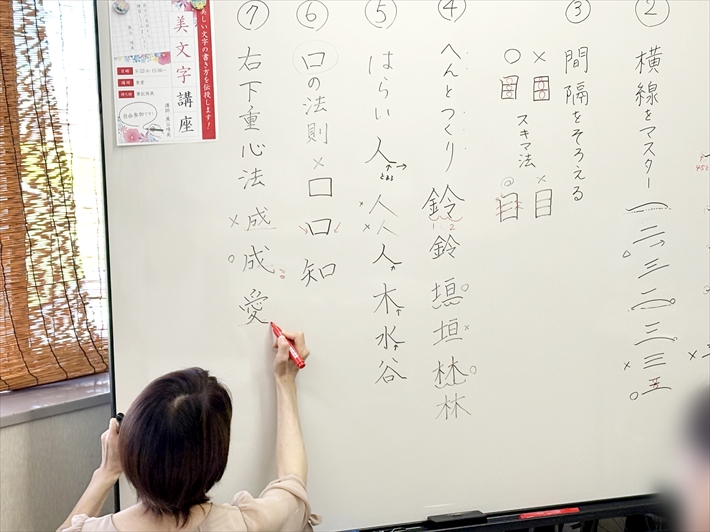 ②
横線をマスター
二
三
二
三
三
五
③
間隔をそろえる
スキマ法
④
へんとつくり
鈴
1 2
鈴
垣
垣
林
林
⑤
はらい
人
とめる
人
人
人
木
水
谷
⑥
口の法則
口
口
知
⑦
右下重心法
成
成
愛
美しい文字の書き方を伝授します!
美文字講座